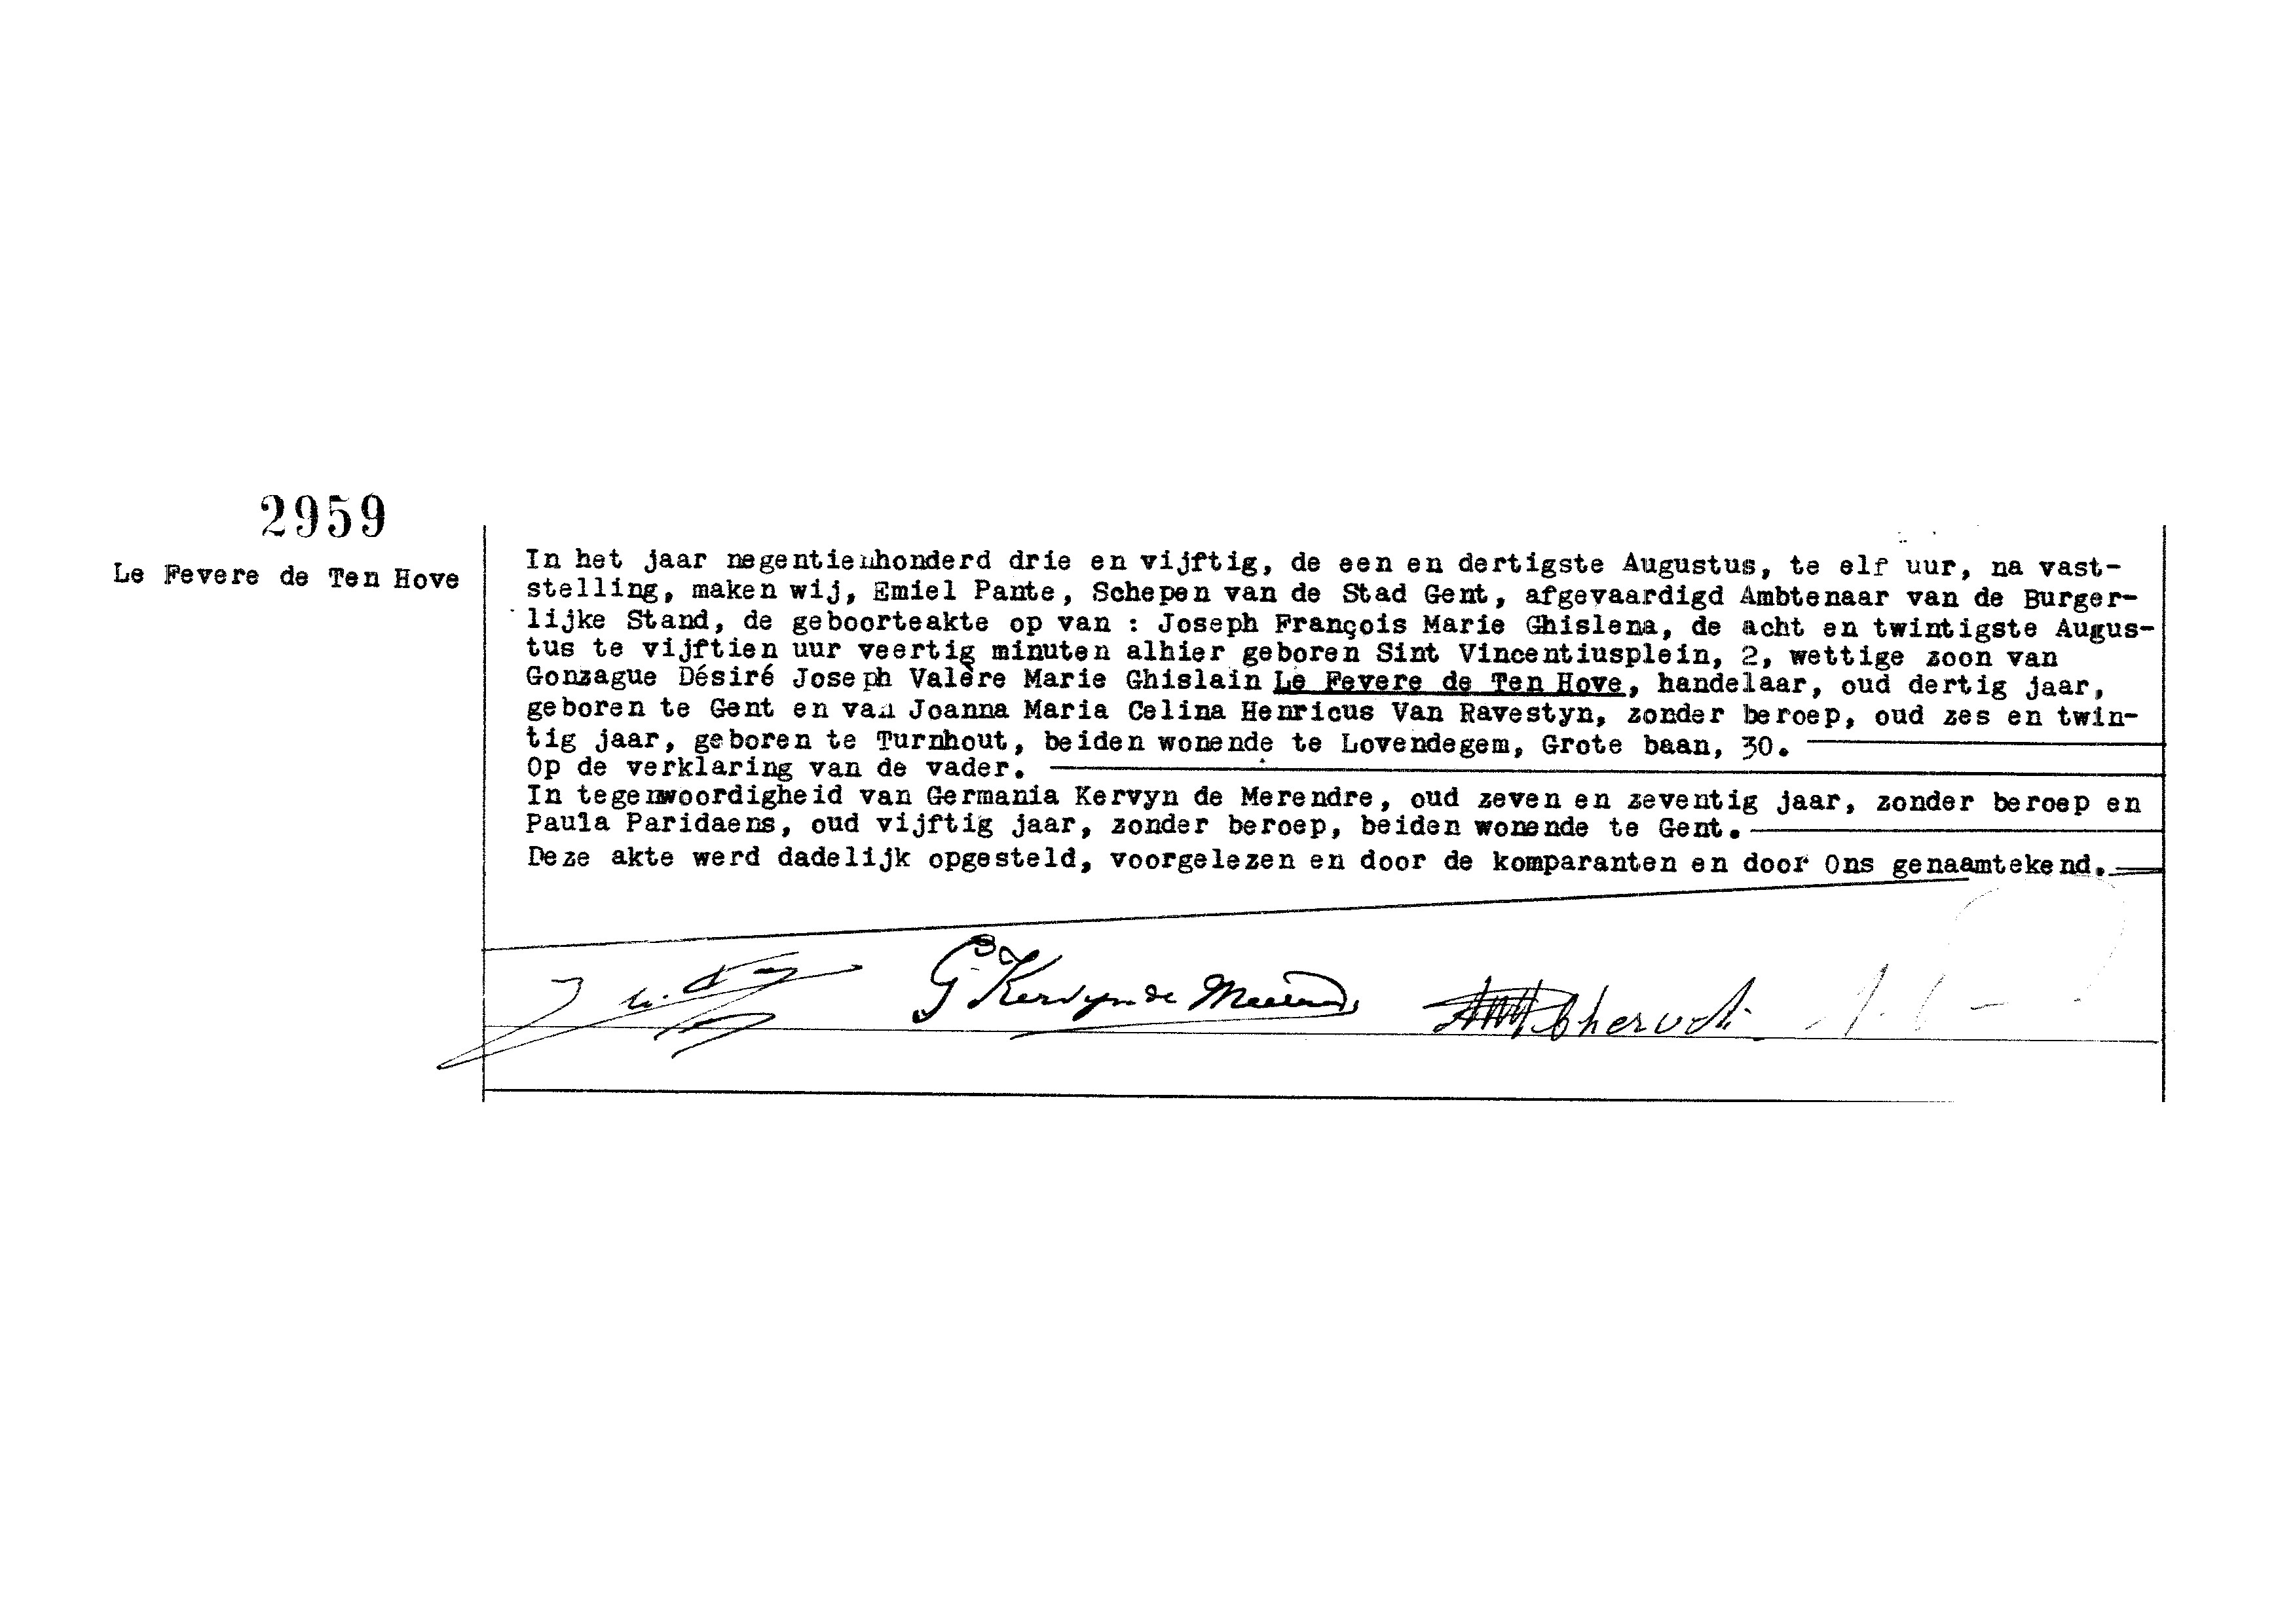 2959
Le Fevere de Ten Hove
In het jaar negentienhonderd drie en vijftig, de een en dertigste Augustus, te elf uur, na vast-
stelling, maken wij, Emiel Pante, Schepen van de Stad Gent, afgevaardigd Ambtenaar van de Burger-
lijke Stand, de geboorteakte op van : Joseph François Marie Ghislena, de acht en twintigste Augus-
tus te vijftien uur veertig minuten alhier geboren Sint Vincentiusplein, 2, wettige zoon van
Gonzague Désiré Joseph Valère Marie Ghislain Le Fevere de Ten Hove, handelaar, oud dertig jaar,
geboren te Gent en van Joanna Maria Celina Henricus Van Ravestyn, zonder beroep, oud zes en twin-
tig jaar, geboren te Turnhout, beiden wonende te Lovendegem, Grote baan, 30.
Op de verklaring van de vader.
In tegenwoordigheid van Germania Kervyn de Merendre, oud zeven en zeventig jaar, zonder beroep en
Paula Paridaens, oud vijftig jaar, zonder beroep, beiden wonende te Gent.
Deze akte werd dadelijk opgesteld, voorgelezen en door de komparanten en door Ons genaamtekend.
G Kervyn de